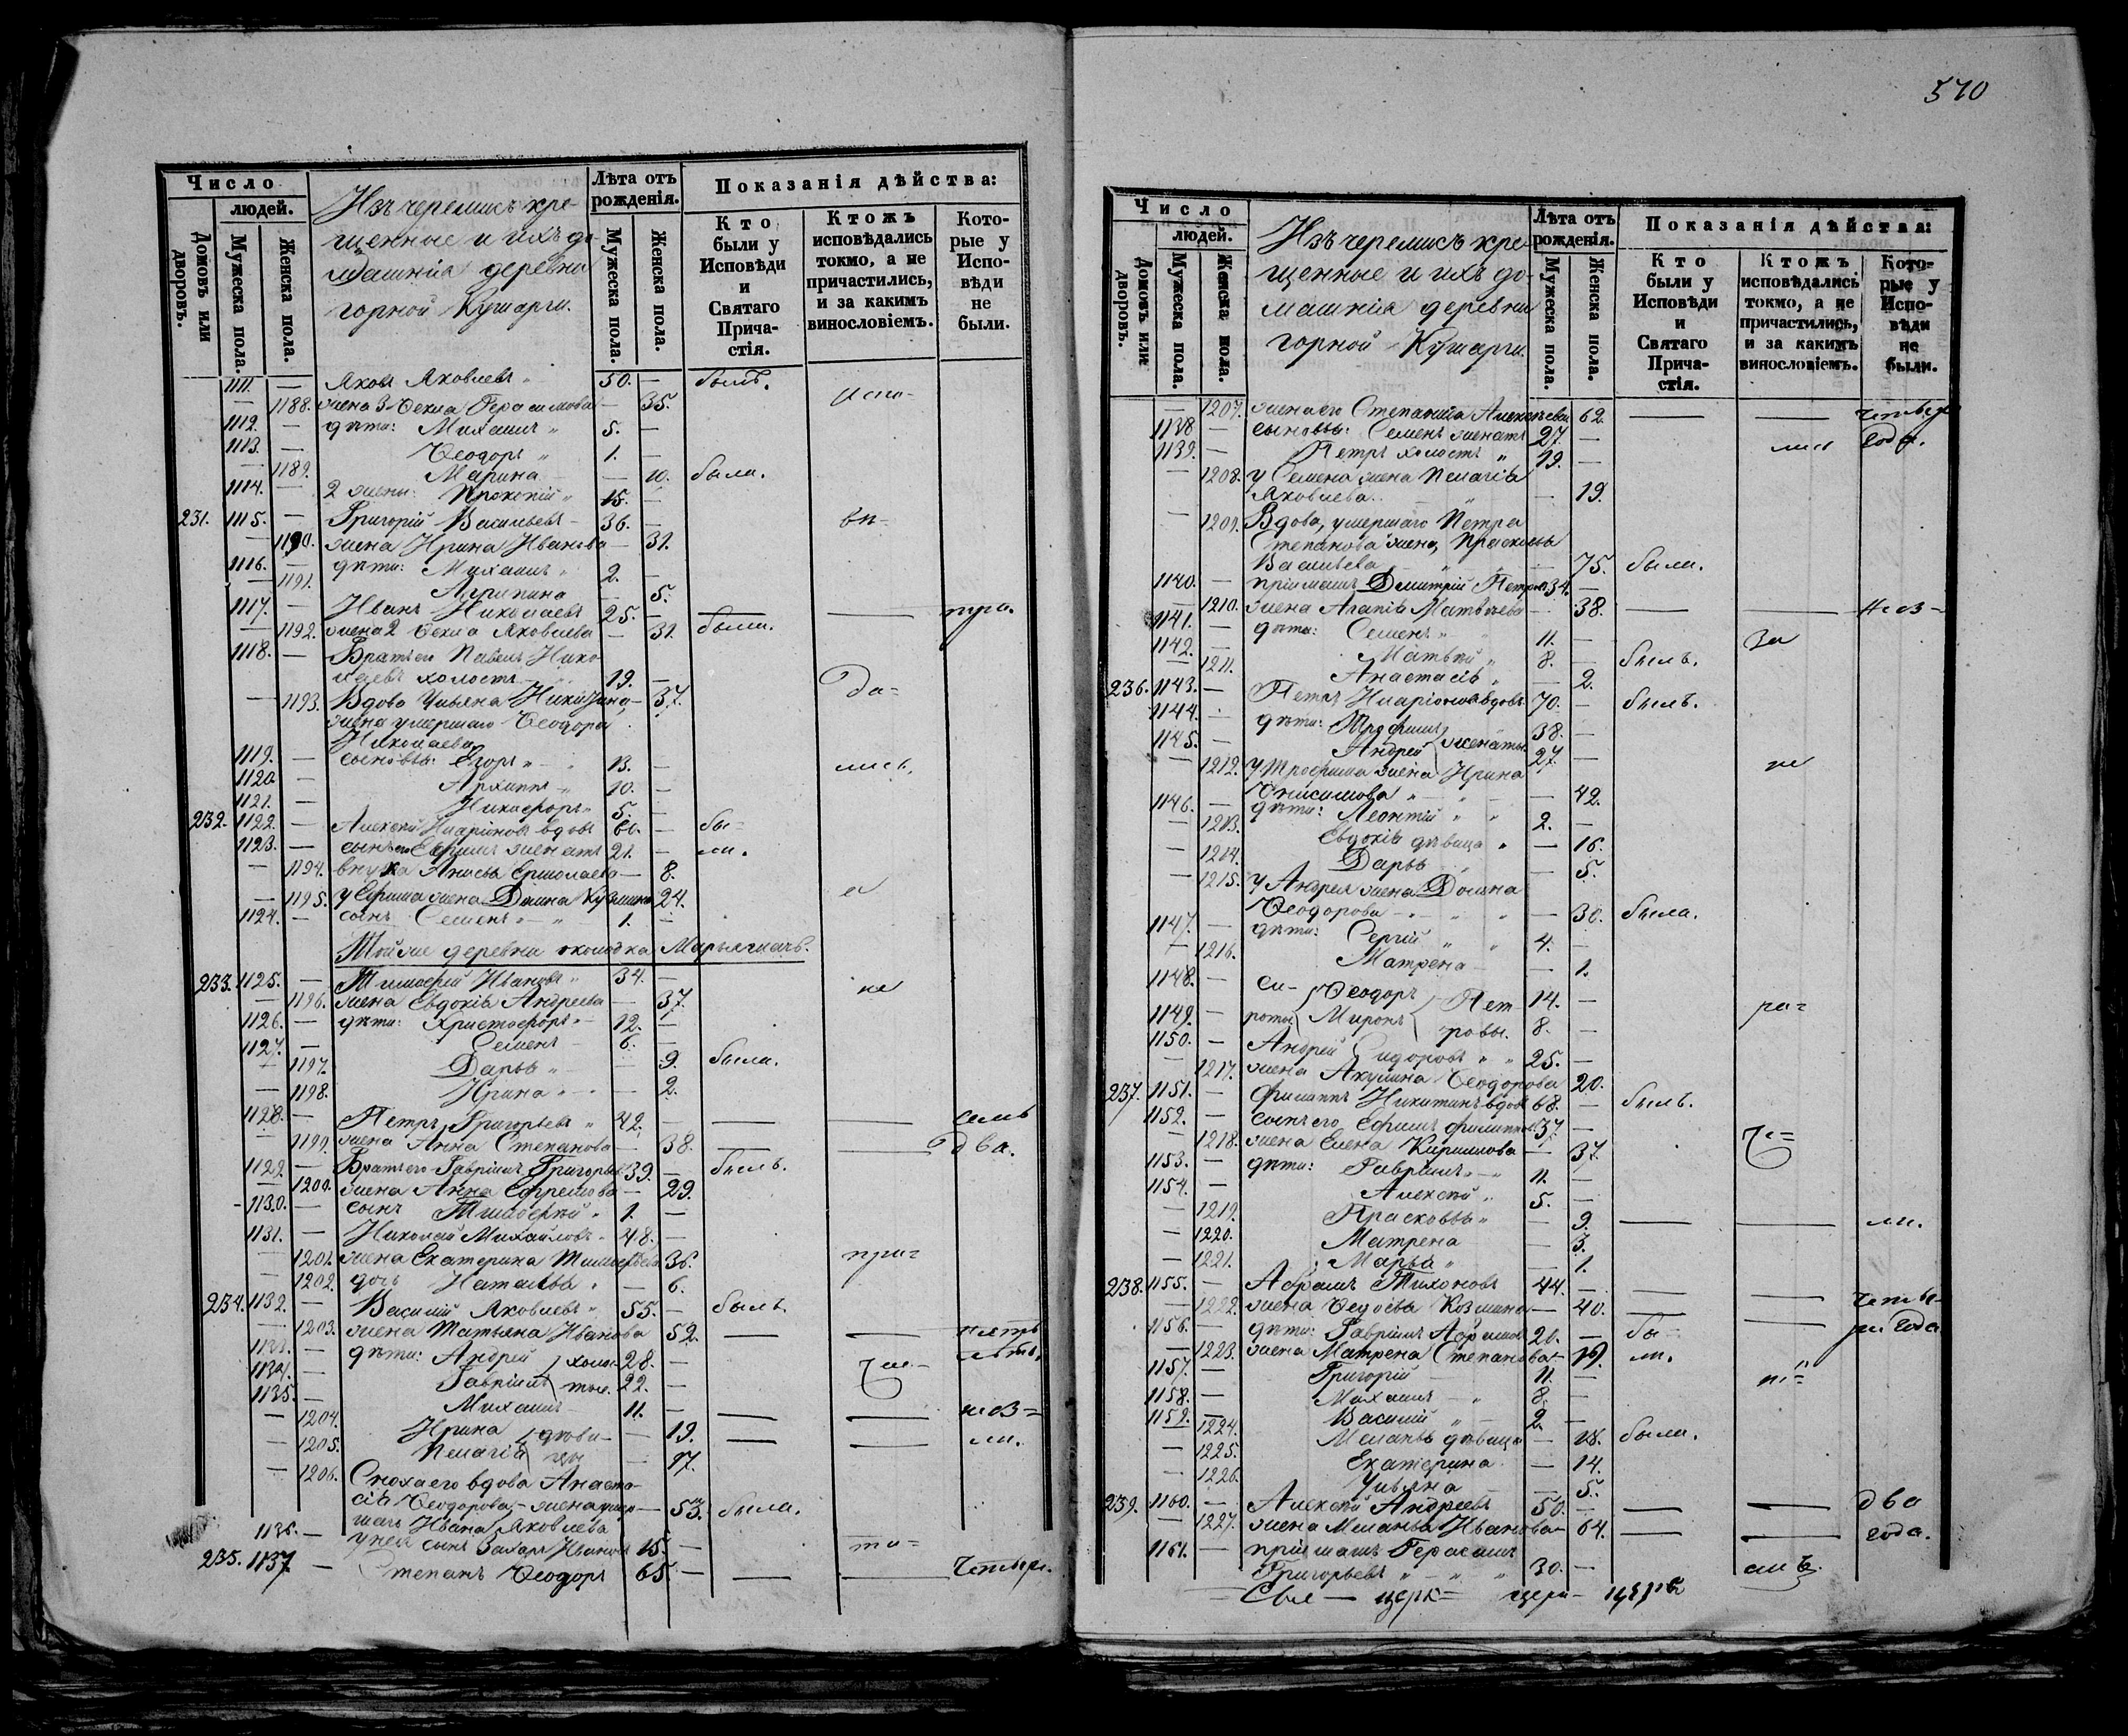 Число
людей.
Домовъ или дворовъ.
Мужеска пола.
Женска пола.
Изъ черемисъ кре-
щенные и ихъ до-
машнія деревни
горной Кушарги.
Лѣта отъ
рожденія.
Мужеска пола.
Женска пола.
Показанія дѣйства:
Кто
были у
Исповѣди
и
Святаго
Прича-
стія.
Ктожъ
исповѣдались
токмо, а не
причастились,
и за какимъ
винословіемъ.
Кото-
рые у
Испо-
вѣди
не
были.
1111. — Яковъ Яковлевъ 50. — былъ.
— 1188. жена 3 Ѳекла Герасимова — 35. испо-
1112. — дѣти: Михаилъ 5. —
1113. — Ѳеодоръ 1. —
— 1189. Марина — 10. была.
1114. — 2 жены: Прокопій 15. —
231. 1115. — Григорій Васильевъ 36. — вѣ-
— 1190. жена Ирина Иванова — 31.
1116. — дѣти: Михаилъ 2. —
— 1191. Агрипина — 5.
1117. — Иванъ Николаевъ 25. — — — три.
— 1192. жена 2 Ѳекла Яковлева — 31. были.
1118. — Братъ его Павелъ Нико-
лаевъ холостъ 19. —
— 1193. Вдова Ульяна Никитина — 37. да-
жена умершаго Ѳеодора
Николаева
1119. — сыновья: Егоръ 13. — лись,
1120. — Архиппъ 10. —
1121. — Никифоръ 5. —
232. 1122. — Алексѣй Иларіоновъ вдовъ 60. — бы-
1123. — сынъ его Ефимъ женатъ 21. — ли.
— 1194. внука Анисья Ермолаева — 8.
— 1195. у Ефима жена Домна Кузмина 24. а
1124. — сынъ Семенъ 1. —
Той же деревни околодка
233. 1125. — Тимофей Ивановъ 34. —
— 1196. жена Евдокія Андреева — 37. не
1126. — дѣти: Христофоръ 12. —
1127. — Семенъ 6. —
— 1197. Дарья — 9. были.
— 1198. Ирина — 2.
1128. — Петръ Григорьевъ 42. — — — семь
— 1199. жена Анна Степанова — 38. — — два.
1129. — Братъ его Гавріилъ Григорьевъ 39. — былъ.
— 1200. жена Анна Ефремова — 29.
1130. — сынъ Тимофей 1. —
1131. — Николай Михайловъ 48. —
— 1201. жена Екатерина Тимофеева 36. при-
— 1202. дочь Наталья — 6.
234. 1132. — Василій Яковлевъ 55. — былъ.
— 1203. жена Татьяна Иванова 52. — — пять
1133. — дѣти: Андрей холо- 28. — ча- лѣтъ.
1134. — Гавріилъ тые. 22. —
1135. — Михаилъ 11. —
— 1204. Ирина дѣви- — 19. — —
— 1205. Пелагія цы — 17. — — ли.
— 1206. Сноха его вдова Анаста-
сія Ѳеодорова, жена умер- — 53. была.
шаго Ивана Яковлева
1136. — у ней сынъ Захаръ Ивановъ 15. — ти-
235. 1137. — Степанъ Ѳеодоръ 65. — — — четыре.
570
Число
людей.
Домовъ или дворовъ.
Мужеска пола.
Женска пола.
Изъ черемисъ кре-
щенные и ихъ до-
машнія деревни
горной Кушарги.
Лѣта отъ
рожденія.
Мужеска пола.
Женска пола.
Показанія дѣйства:
Кто
были у
Исповѣди
и
Святаго
Прича-
стія.
Ктожъ
исповѣдались
токмо, а не
причастились,
и за какимъ
винословіемъ.
Кото-
рые у
Испо-
вѣди
не
были.
— 1207. жена его Степанида Алексѣева 62. — — четыре
1138 — сыновья: Семенъ женатъ 27. — года.
1139. — Петръ холостъ 19. —
— 1208. у Семена жена Пелагія
Яковлева — 19.
— 1209. Вдова, умершаго Петра
Степанова жена, Прасковья
Васильева — 75. были.
1140. — пріимашъ Дмитрій Петровъ 34. —
— 1210. жена Агапія Матвѣева — 38. — —
1141. — дѣти: Семенъ 11. — за
1142. — Матвѣй 8. — былъ.
— 1211. Анастасія — 2.
236. 1143. — Петръ Иларіоновъ вдовъ 70. — былъ.
1144. — дѣти: Трофимъ женаты 38. —
1145. — Андрей 27. —
— 1212. у Трофима жена Ирина не
Онисимова — 42.
1146. — дѣти: Леонтій 2. —
— 1213. Евдокія дѣвица — 16.
— 1214. Дарья — 5.
— 1215. у Андрея жена Домна
Ѳеодорова — 30. была.
1147. — дѣти: Сергій 4. —
— 1216. Матрена — 1.
1148. — си- Ѳеодоръ Пет- 14. —
1149. — роты Миронъ ровы. 8. — ра-
1150. — Андрей Сидоровъ 25. —
— 1217. жена Акулина Ѳеодорова 20.
237. 1151. — Филиппъ Никитинъ вдовъ 68. — былъ.
1152. — сынъ его Ефимъ Филипповъ 37. —
— 1218. жена Елена Кирилова — 37. че-
1153. — дѣти: Гавріилъ 11. —
1154. — Алексѣй 5. —
— 1219. Прасковья — 9. — — ли.
— 1220. Матрена — 3.
— 1221. Марья — 1.
238. 1155. — Абрамъ Тихоновъ 44. — — — четы-
— 1222. жена Ѳедосья Козмина — 40. — — ре года
1156. — дѣти: Гавріилъ Абрамовъ 20. — бы-
— 1223. жена Матрена Степанова — 19. ли.
1157. — Григорій 11. —
1158. — Михаилъ 8. —
1159. — Василій 2. —
— 1224. Меланья дѣвица — 18. были.
— 1225. Екатерина — 14.
— 1226. Ульяна — 5.
239. 1160. — Алексѣй Андреевъ 50. — — — два
— 1227. жена Меланья Иванова — 64. — — года.
1161. — пріимашъ Герасимъ
Григорьевъ 30. —